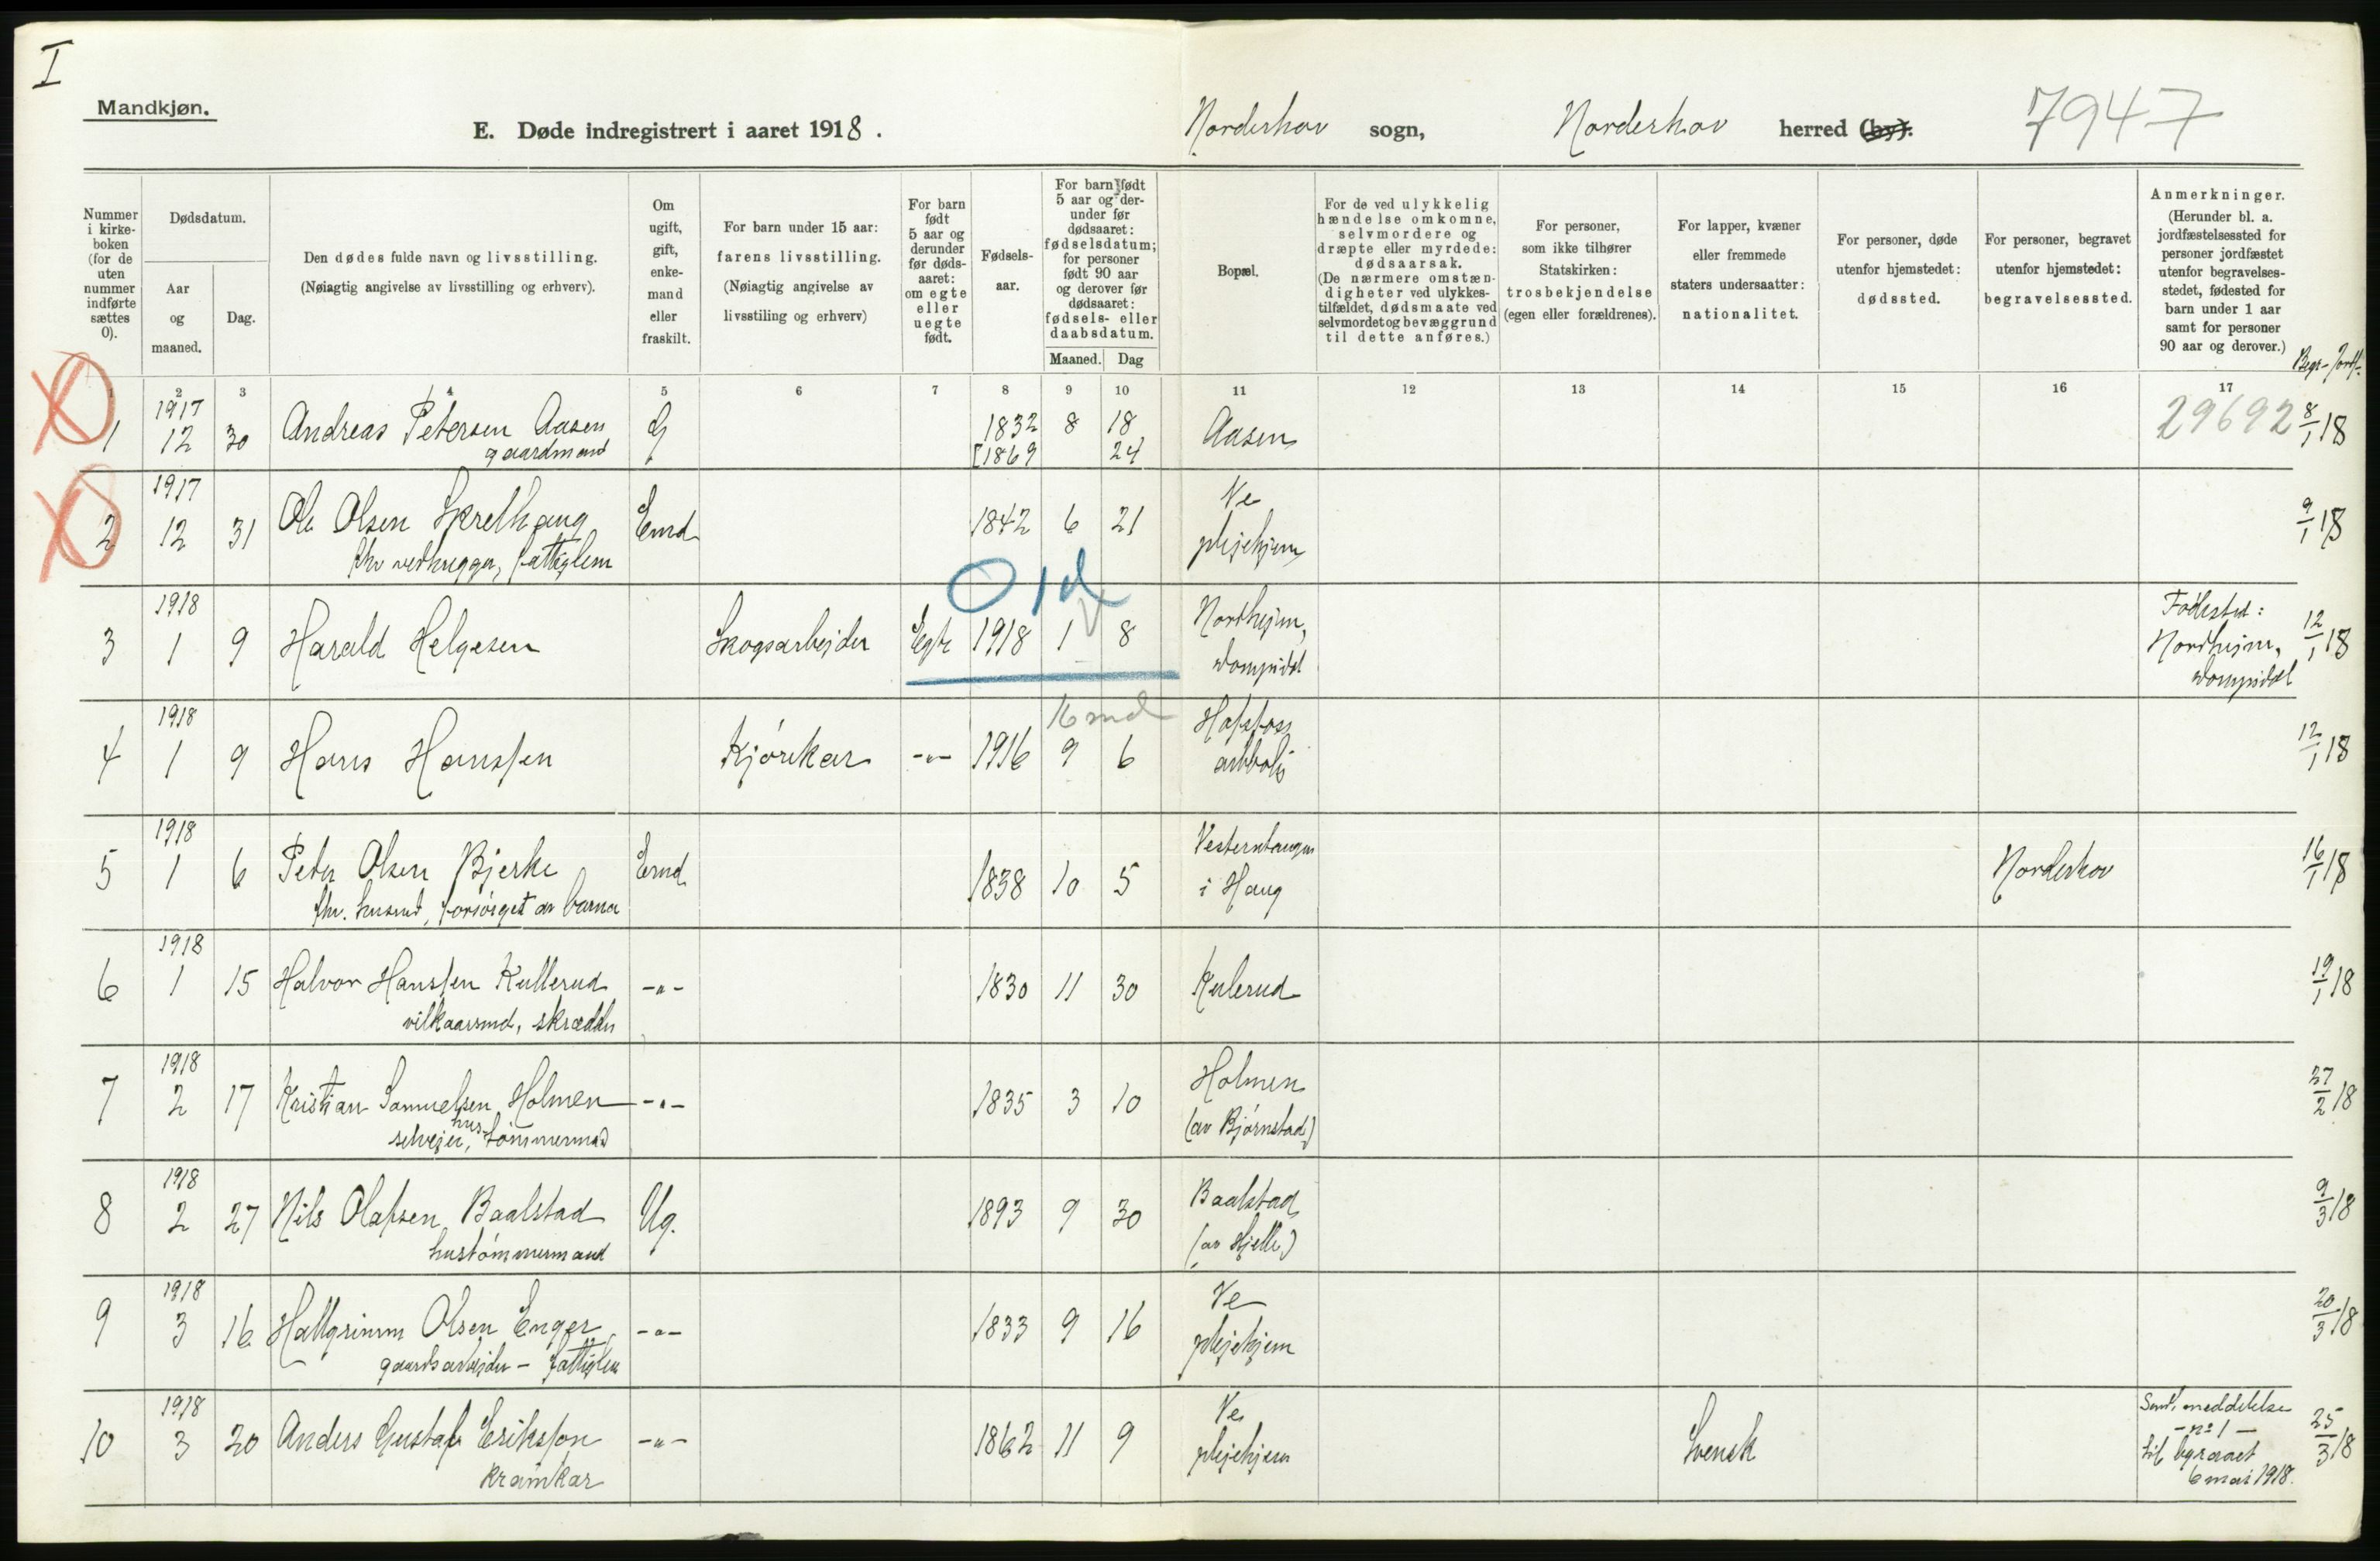 I
Mandkjøn.
E. Døde indregistrert i aaret 1918. Norderhov sogn, Norderhov herred (by). 7947
Nummer i kirke-boken (for de uten nummer indførte sættes 0).
Dødsdatum.
Aar og maaned.
Dag.
Den dødes fulde navn og livsstilling.
(Nøiagtig angivelse av livsstilling og erhverv).
Om ugift, gift, enke-mand eller fraskilt.
For barn under 15 aar: farens livsstilling.
(Nøiagtig angivelse av livsstiling og erhverv)
For barn født 5 aar og derunder før døds-aaret: om egte eller uegte født.
Fødsels-aar.
For barn født 5 aar og der-under før dødsaaret: fødselsdatum; for personer født 90 aar og derover før dødsaaret: fødsels- eller daabsdatum.
Maaned. Dag
Bopæl.
For de ved ulykkelig hændelse omkomne, selvmordere og dræpte eller myrdede: dødsaarsak.
(De nærmere omstæn-digheter ved ulykkes-tilfældet, dødsmaate ved selvmordet og bevæggrund til dette anføres.)
For personer, som ikke tilhører Statskirken: trosbekjendelse (egen eller forældrenes).
For lapper, kvæner eller fremmede staters undersaatter: nationalitet.
For personer, døde utenfor hjemstedet: dødssted.
For personer, begravet utenfor hjemstedet: begravelsessted.
Anmerkninger.
(Herunder bl. a. jordfæstelsessted for personer jordfæstet utenfor begravelses-stedet, fødested for barn under 1 aar samt for personer 90 aar og derover.)
Begr- Jordf.
1 2 3 4 5 6 7 8 9 10 11 12 13 14 15 16 17
1 1917 12 30 Andreas Petersen Aasen G 1832 8 18 Aasen 29692 8/1 18
gaardmand [1869 24
2 1917 12 31 Ole Olsen Emd 1842 6 21 Ve plejehjem 9/1 18
fhv vedhugger, fattiglem
0 1 d
3 1918 1 9 Harald Helgesen Skogsarbejder Egte 1918 1 8 Nordhejm, Fødested: Nordhejm, 12/1 18
16 md
4 1918 1 9 Hans Hanssen Kjørekar -"- 1916 9 6 Hofsfoss arbbolig 12/1 18
5 1918 1 6 Peter Olsen Bjerke Emd 1838 10 5 i Haug Norderhov 16/1 18
fhv. husmd, forsørget av barna
6 1918 1 15 Halvor Hanssen Kullerud -"- 1830 11 30 Kulerud 19/1 18
vilkaarsmd, skrædder
7 1918 2 17 Kristian Samuelsen Holmen -"- 1835 3 10 Holmen (av Bjørnstad) 27/2 18
selvejer, hustømmermand
8 1918 2 27 Nils Olafsen Baalstad Ug. 1893 9 30 Baalstad (av Hjelle) 9/3 18
hustømmermand
9 1918 3 16 Hallgrimm Olsen Enger -"- 1833 9 16 Ve plejehjem 20/3 18
gaardsarbejder - fattiglem
10 1918 3 20 Anders Gustaf Eriksson -"- 1862 11 9 Ve plejehjem Svensk Send. meddelelse - nº 1 - 6 mai 1918. 25/3 18
kramkar